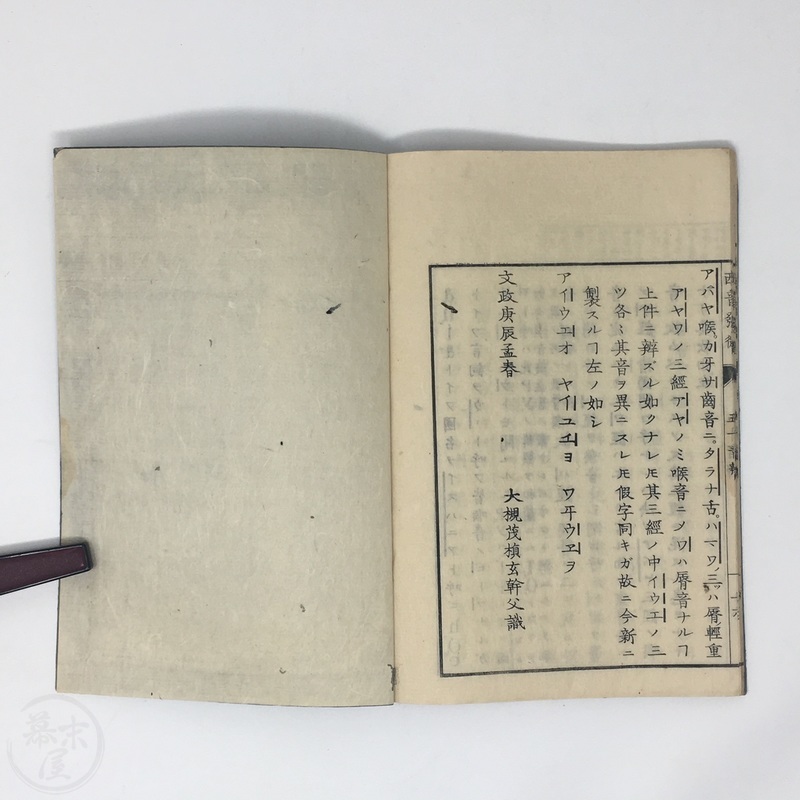 アバヤ喉。カ牙サ齒音ニ。タラナ舌。ハマワノ三ツハ脣輕重
アヤワノ三經アヤノミ喉音ニメワハ脣音ナルヿ
上件ニ辯ズル如クナレ𪜈其三經ノ中イウエノ三
ツ各〻其音ヲ異ニスレ𪜈假字同キガ故ニ今新ニ
製スルヿ左ノ如シ
アイウエオ ヤイユエヨ ワヰウヱヲ
文政庚辰孟春 大槻茂楨玄幹父識
西音發微
幕末屋